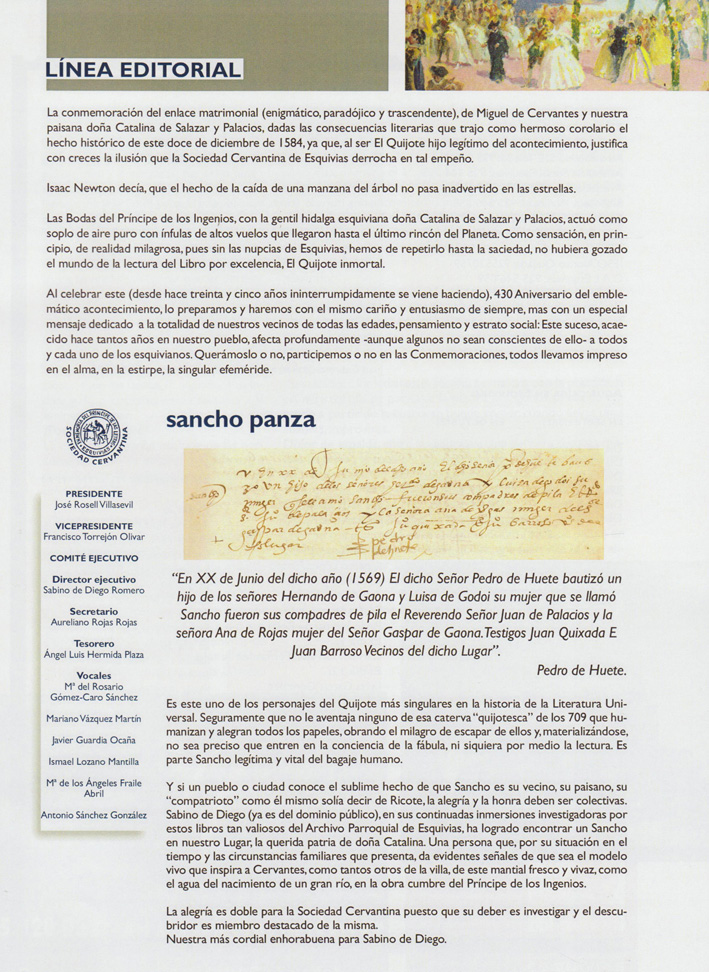 LÍNEA EDITORIAL
La conmemoración del enlace matrimonial (enigmático, paradójico y trascendente), de Miguel de Cervantes y nuestra
paisana doña Catalina de Salazar y Palacios, dadas las consecuencias literarias que trajo como hermoso corolario el
hecho histórico de este doce de diciembre de 1584, ya que, al ser El Quijote hijo legítimo del acontecimiento, justifica
con creces la ilusión que la Sociedad Cervantina de Esquivias derrocha en tal empeño.
Isaac Newton decía, que el hecho de la caída de una manzana del árbol no pasa inadvertido en las estrellas.
Las Bodas del Príncipe de los Ingenios, con la gentil hidalga esquiviana doña Catalina de Salazar y Palacios, actuó como
soplo de aire puro con ínfulas de altos vuelos que llegaron hasta el último rincón del Planeta. Como sensación, en prin-
cipio, de realidad milagrosa, pues sin las nupcias de Esquivias, hemos de repetirlo hasta la saciedad, no hubiera gozado
el mundo de la lectura del Libro por excelencia, El Quijote inmortal.
Al celebrar este (desde hace treinta y cinco años ininterrumpidamente se viene haciendo), 430 Aniversario del emble-
mático acontecimiento, lo preparamos y haremos con el mismo cariño y entusiasmo de siempre, mas con un especial
mensaje dedicado a la totalidad de nuestros vecinos de todas las edades, pensamiento y estrato social: Este suceso, acae-
cido hace tantos años en nuestro pueblo, afecta profundamente -aunque algunos no sean conscientes de ello- a todos
y cada uno de los esquivianos. Querámoslo o no, participemos o no en las Conmemoraciones, todos llevamos impreso
en el alma, en la estirpe, la singular efeméride.
SOCIEDAD CERVANTINA
PRESIDENTE
José Rosell Villasevil
VICEPRESIDENTE
Francisco Torrejón Olivar
COMITÉ EJECUTIVO
Director ejecutivo
Sabino de Diego Romero
Secretario
Aureliano Rojas Rojas
Tesorero
Ángel Luis Hermida Plaza
Vocales
Mª del Rosario
Gómez-Caro Sánchez
Mariano Vázquez Martín
Javier Guardia Ocaña
Ismael Lozano Mantilla
Mª de los Ángeles Fraile
Abril
Antonio Sánchez González
sancho panza
"En XX de Junio del dicho año (1569) El dicho Señor Pedro de Huete bautizó un
hijo de los señores Hernando de Gaona y Luisa de Godoi su mujer que se llamó
Sancho fueron sus compadres de pila el Reverendo Señor Juan de Palacios y la
señora Ana de Rojas mujer del Señor Gaspar de Gaona. Testigos Juan Quixada E
Juan Barroso Vecinos del dicho Lugar".
Pedro de Huete.
Es este uno de los personajes del Quijote más singulares en la historia de la Literatura Uni-
versal. Seguramente que no le aventaja ninguno de esa caterva "quijotesca" de los 709 que hu-
manizan y alegran todos los papeles, obrando el milagro de escapar de ellos y, materializándose,
no sea preciso que entren en la conciencia de la fábula, ni siquiera por medio la lectura. Es
parte Sancho legítima y vital del bagaje humano.
Y si un pueblo o ciudad conoce el sublime hecho de que Sancho es su vecino, su paisano, su
"compatrioto" como él mismo solía decir de Ricote, la alegría y la honra deben ser colectivas.
Sabino de Diego (ya es del dominio público), en sus continuadas inmersiones investigadoras por
estos libros tan valiosos del Archivo Parroquial de Esquivias, ha logrado encontrar un Sancho
en nuestro Lugar, la querida patria de doña Catalina. Una persona que, por su situación en el
tiempo y las circunstancias familiares que presenta, da evidentes señales de que sea el modelo
vivo que inspira a Cervantes, como tantos otros de la villa, de este mantial fresco y vivaz, como
el agua del nacimiento de un gran río, en la obra cumbre del Príncipe de los Ingenios.
La alegría es doble para la Sociedad Cervantina puesto que su deber es investigar y el descu-
bridor es miembro destacado de la misma.
Nuestra más cordial enhorabuena para Sabino de Diego.